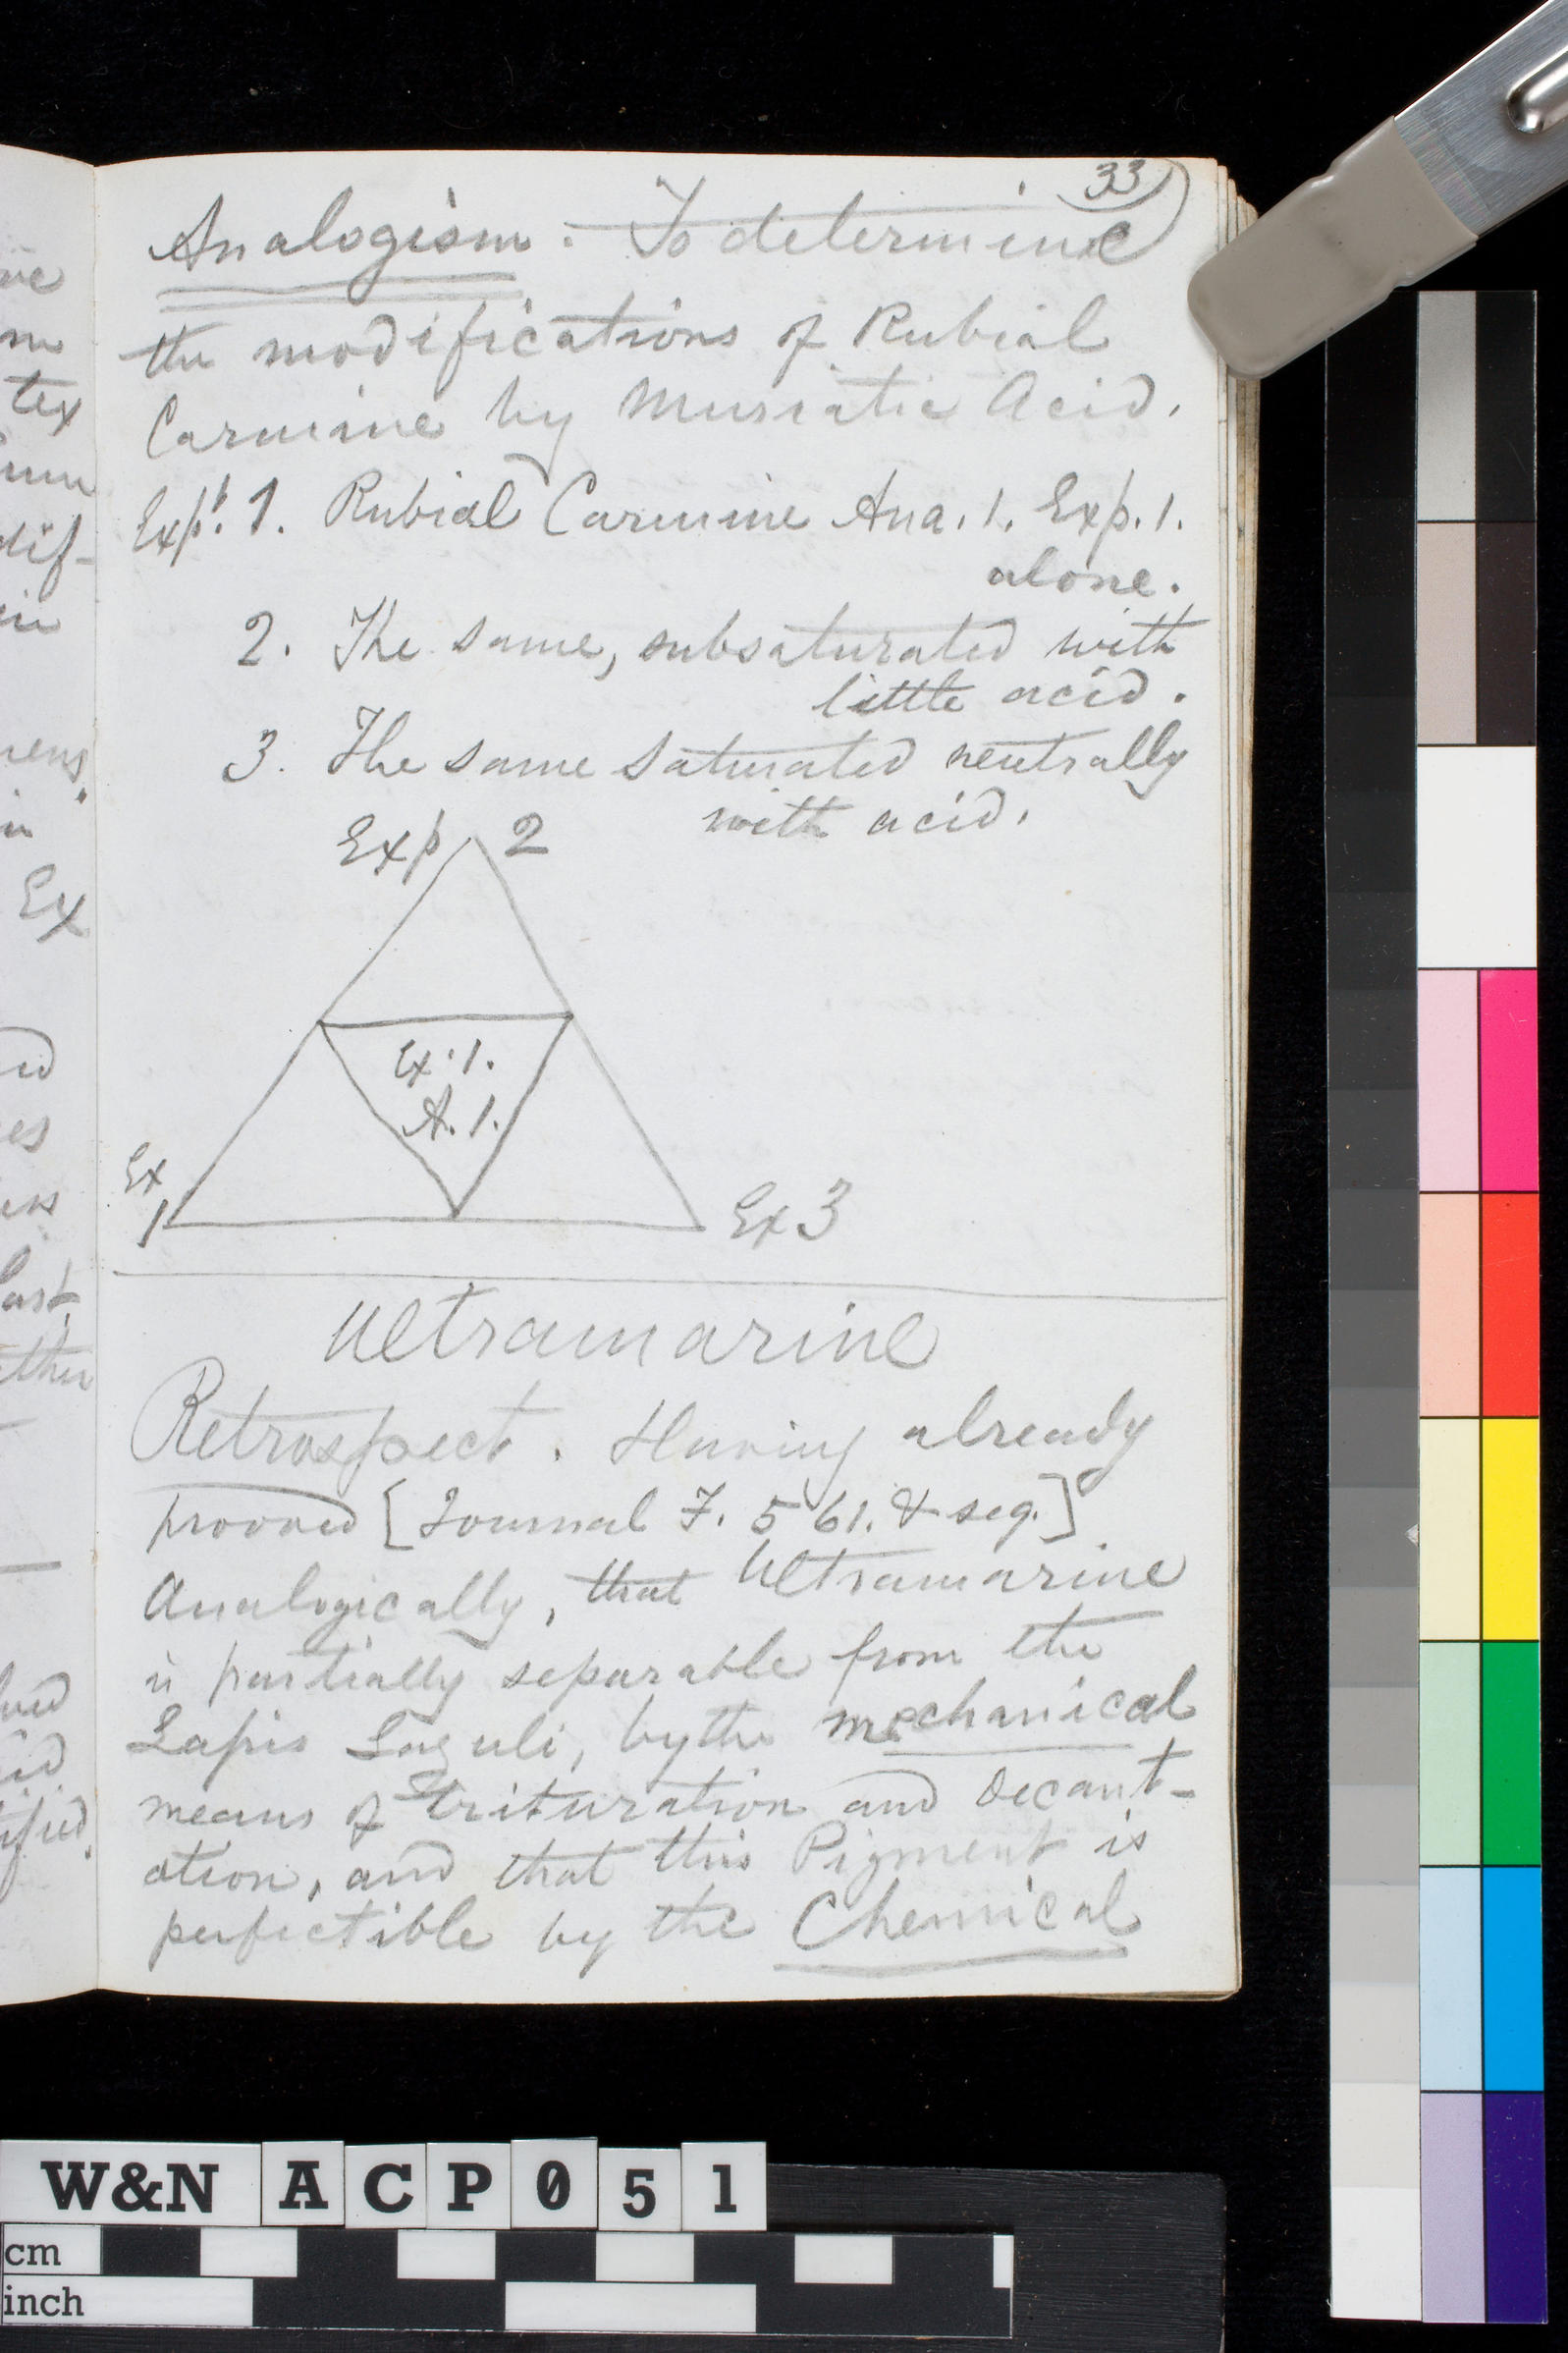 33)
Analogism. To determine
the modifications of Rubial
Carmine by Muriatic Acid.
Expt. 1. Rubial Carmine Ana. 1. Exp. 1.
alone.
2. The same, subsaturated with
little acid.
3. The same saturated neutrally
with acid.
Exp 2
Ex. 1.
A. 1.
Ex
1
Ex 3
Ultramarine
Retrospect. Having already
prooved [Journal F. 561. & seq.]
Analogically, that Ultramarine
is partially separable from the
Lapis Lazuli, by the mechanical
means of trituration and decant-
ation, and that this Pigment is
perfectible by the Chemical
ve
m
tex
dif-
in
Ex
es
Last
ther
W&N ACP051
cm
inch